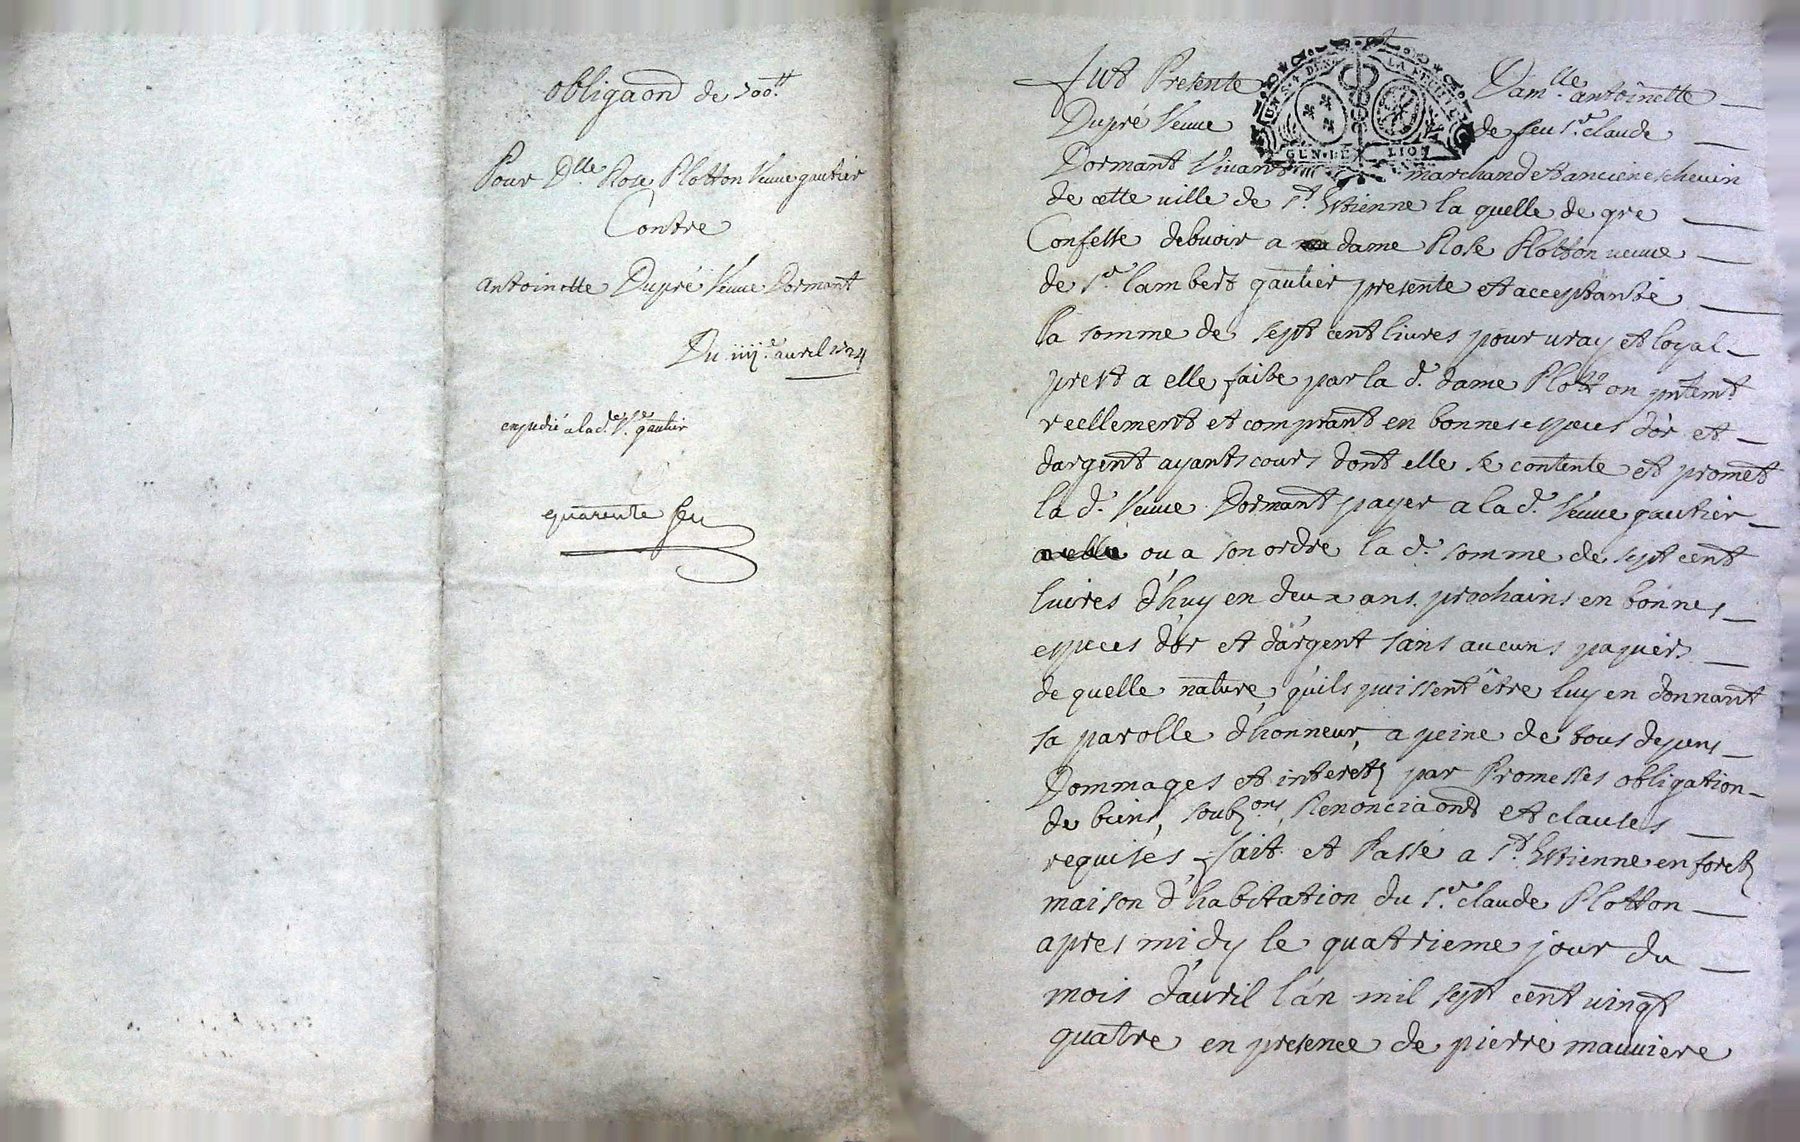 obligaond de 700ᵗᵗ
Pour Dlle Rose Plotton Veuve gautier
Contre
antoinette Dupré Veuve Dormant
Du iiij.e avril 1724
expedié a la d.e Ve gautier
quarente
fut Presente Dam.lle antoinette
Dupré Veuve de feu Sr. claude
Dormant Vivant marchand et ancien eschevin
UN S. 4 DEN. LA FEUILLE
GEN. DE LION
de cette ville de St. Etienne la quelle de gre
Confesse debvoir a dame Rose Plotton veuve
de Sr. lambert gautier presente et acceptante
la somme de sept cent livres pour vray et loyal
prest a elle faite par la d. dame Plotton
reellement et comptant en bonnes especes d'or et
dargent ayants cours dont elle se contente et promet
la d. Veuve Dormant payer a la d. Veuve gautier
ou a son ordre la d. somme de sept cent
livres d'huy en deux ans prochains en bonnes
especes d'or et d'argent sans aucuns papiers
de quelle nature quils puissent être luy en donnant
sa parolle d'honneur, a peine de tous depens
Dommages et interets par Promesses obligation
de biens, soub.ons, Renonciaond et clauses
requises fait et Passé a St. Etienne en forets
maison d'habitation du Sr. claude Plotton
apres midy le quatrieme jour du
mois d'avril l'an mil sept cent vingt
quatre en presence de pierre mauviere